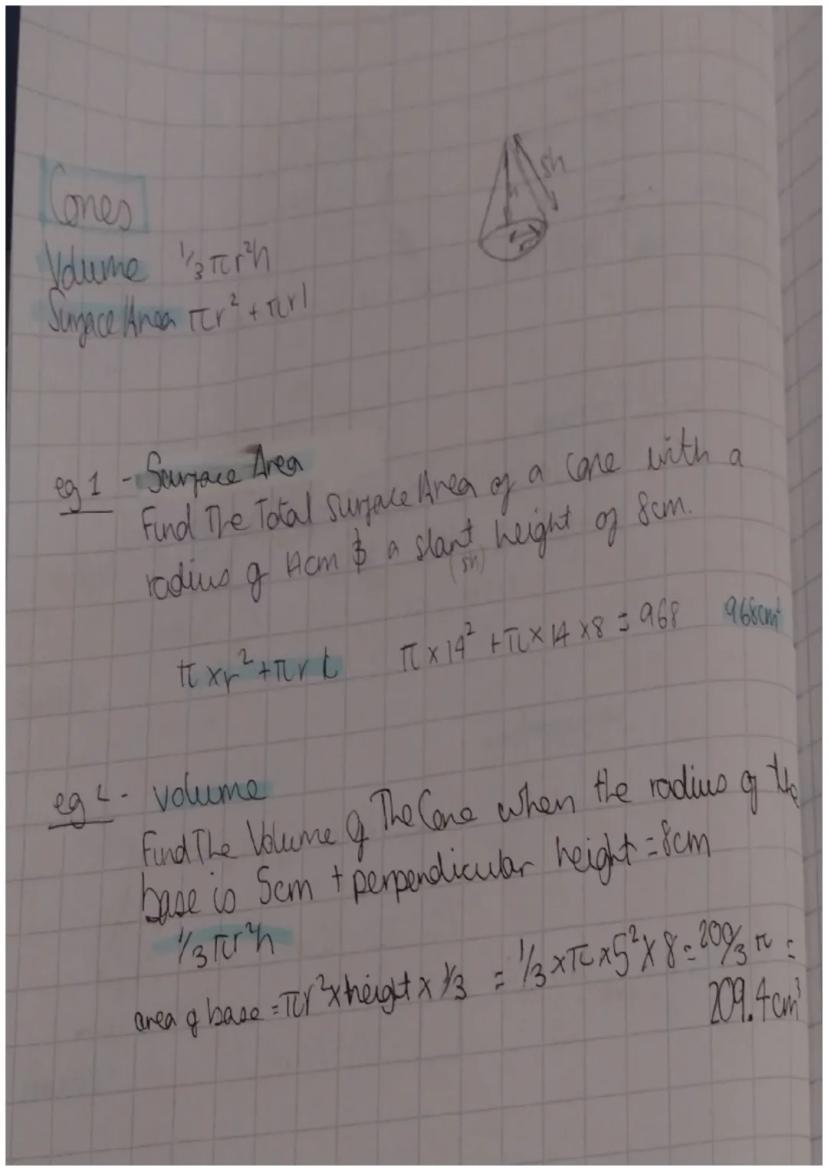 Cones
sh
h
r
Volume 1/3 πr²h
Surface Area πr² + πrl
eg 1 - Surface Area
Find The Total Surface Area of a cone with a
radius of 14cm & a slant height of 8cm.
(sh)
π x r² + π r l π x 14² + π x 14 x 8 = 968 968cm²
eg 2 - volume
Find The Volume of The Cone when the radius of the
base is 5cm + perpendicular height = 8cm
1/3 πr²h
area of base = πr² x height x 1/3 = 1/3 x π x 5² x 8 = 200/3 π =
209.4cm³